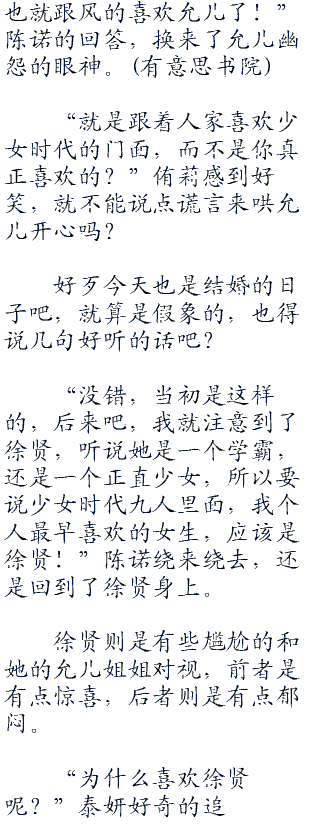 也就跟风的喜欢允儿了！”
陈诺的回答，换来了允儿幽
怨的眼神。(有意思书院)
“就是跟着人家喜欢少
女时代的门面，而不是你真
正喜欢的？”侑莉感到好
笑，就不能说点谎言来哄允
儿开心吗？
好歹今天也是结婚的日
子吧，就算是假象的，也得
说几句好听的话吧？
“没错，当初是这样
的，后来吧，我就注意到了
徐贤，听说她是一个学霸，
还是一个正直少女，所以要
说少女时代九人里面，我个
人最早喜欢的女生，应该是
徐贤！”陈诺绕来绕去，还
是回到了徐贤身上。
徐贤则是有些尴尬的和
她的允儿姐姐对视，前者是
有点惊喜，后者则是有点郁
闷。
“为什么喜欢徐贤
呢？”泰妍好奇的追